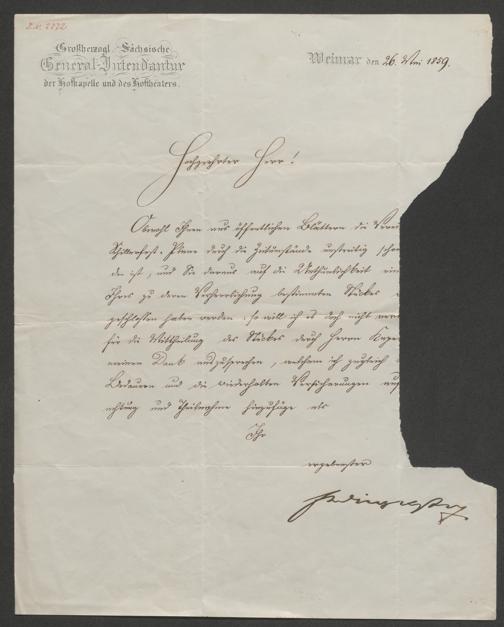 Z. N. 2272
Großherzogl. Sächsische
General-Intendantur
der Hofkapelle und des Hoftheaters.
Weimar den 26. Mai 1859.
Hochgeehrter Herr!
Obwohl Ihnen aus öffentlichen Blättern die
Schillerfest-Plane durch die Zeitumstände unstreitig schon
den ist, und Sie daraus auf die Unthunlichkeit
Ihres zu deren Verherrlichung bestimmten Stückes
geschlossen haben werden, so will ich es doch nicht
für die Mittheilung des Stückes durch Herrn
meinen Dank auszusprechen, welchem ich zugleich
Bedauern und die wiederholten Versicherungen
achtung und Theilnahme hinzufüge als
Ihr
ergebenster